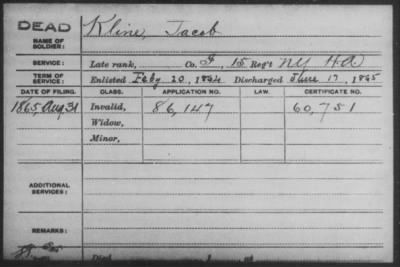 DEAD
NAME OF SOLDIER: Kline, Jacob
SERVICE: Late rank, Co. F, 15 Reg't NY H A
TERM OF SERVICE: Enlisted Feby 20, 1864 Discharged June 17, 1865
DATE OF FILING. CLASS. APPLICATION NO. LAW. CERTIFICATE NO.
1865, Aug. 31 Invalid, 86,147 60,751
Widow,
Minor,
ADDITIONAL SERVICES:
REMARKS:
Died